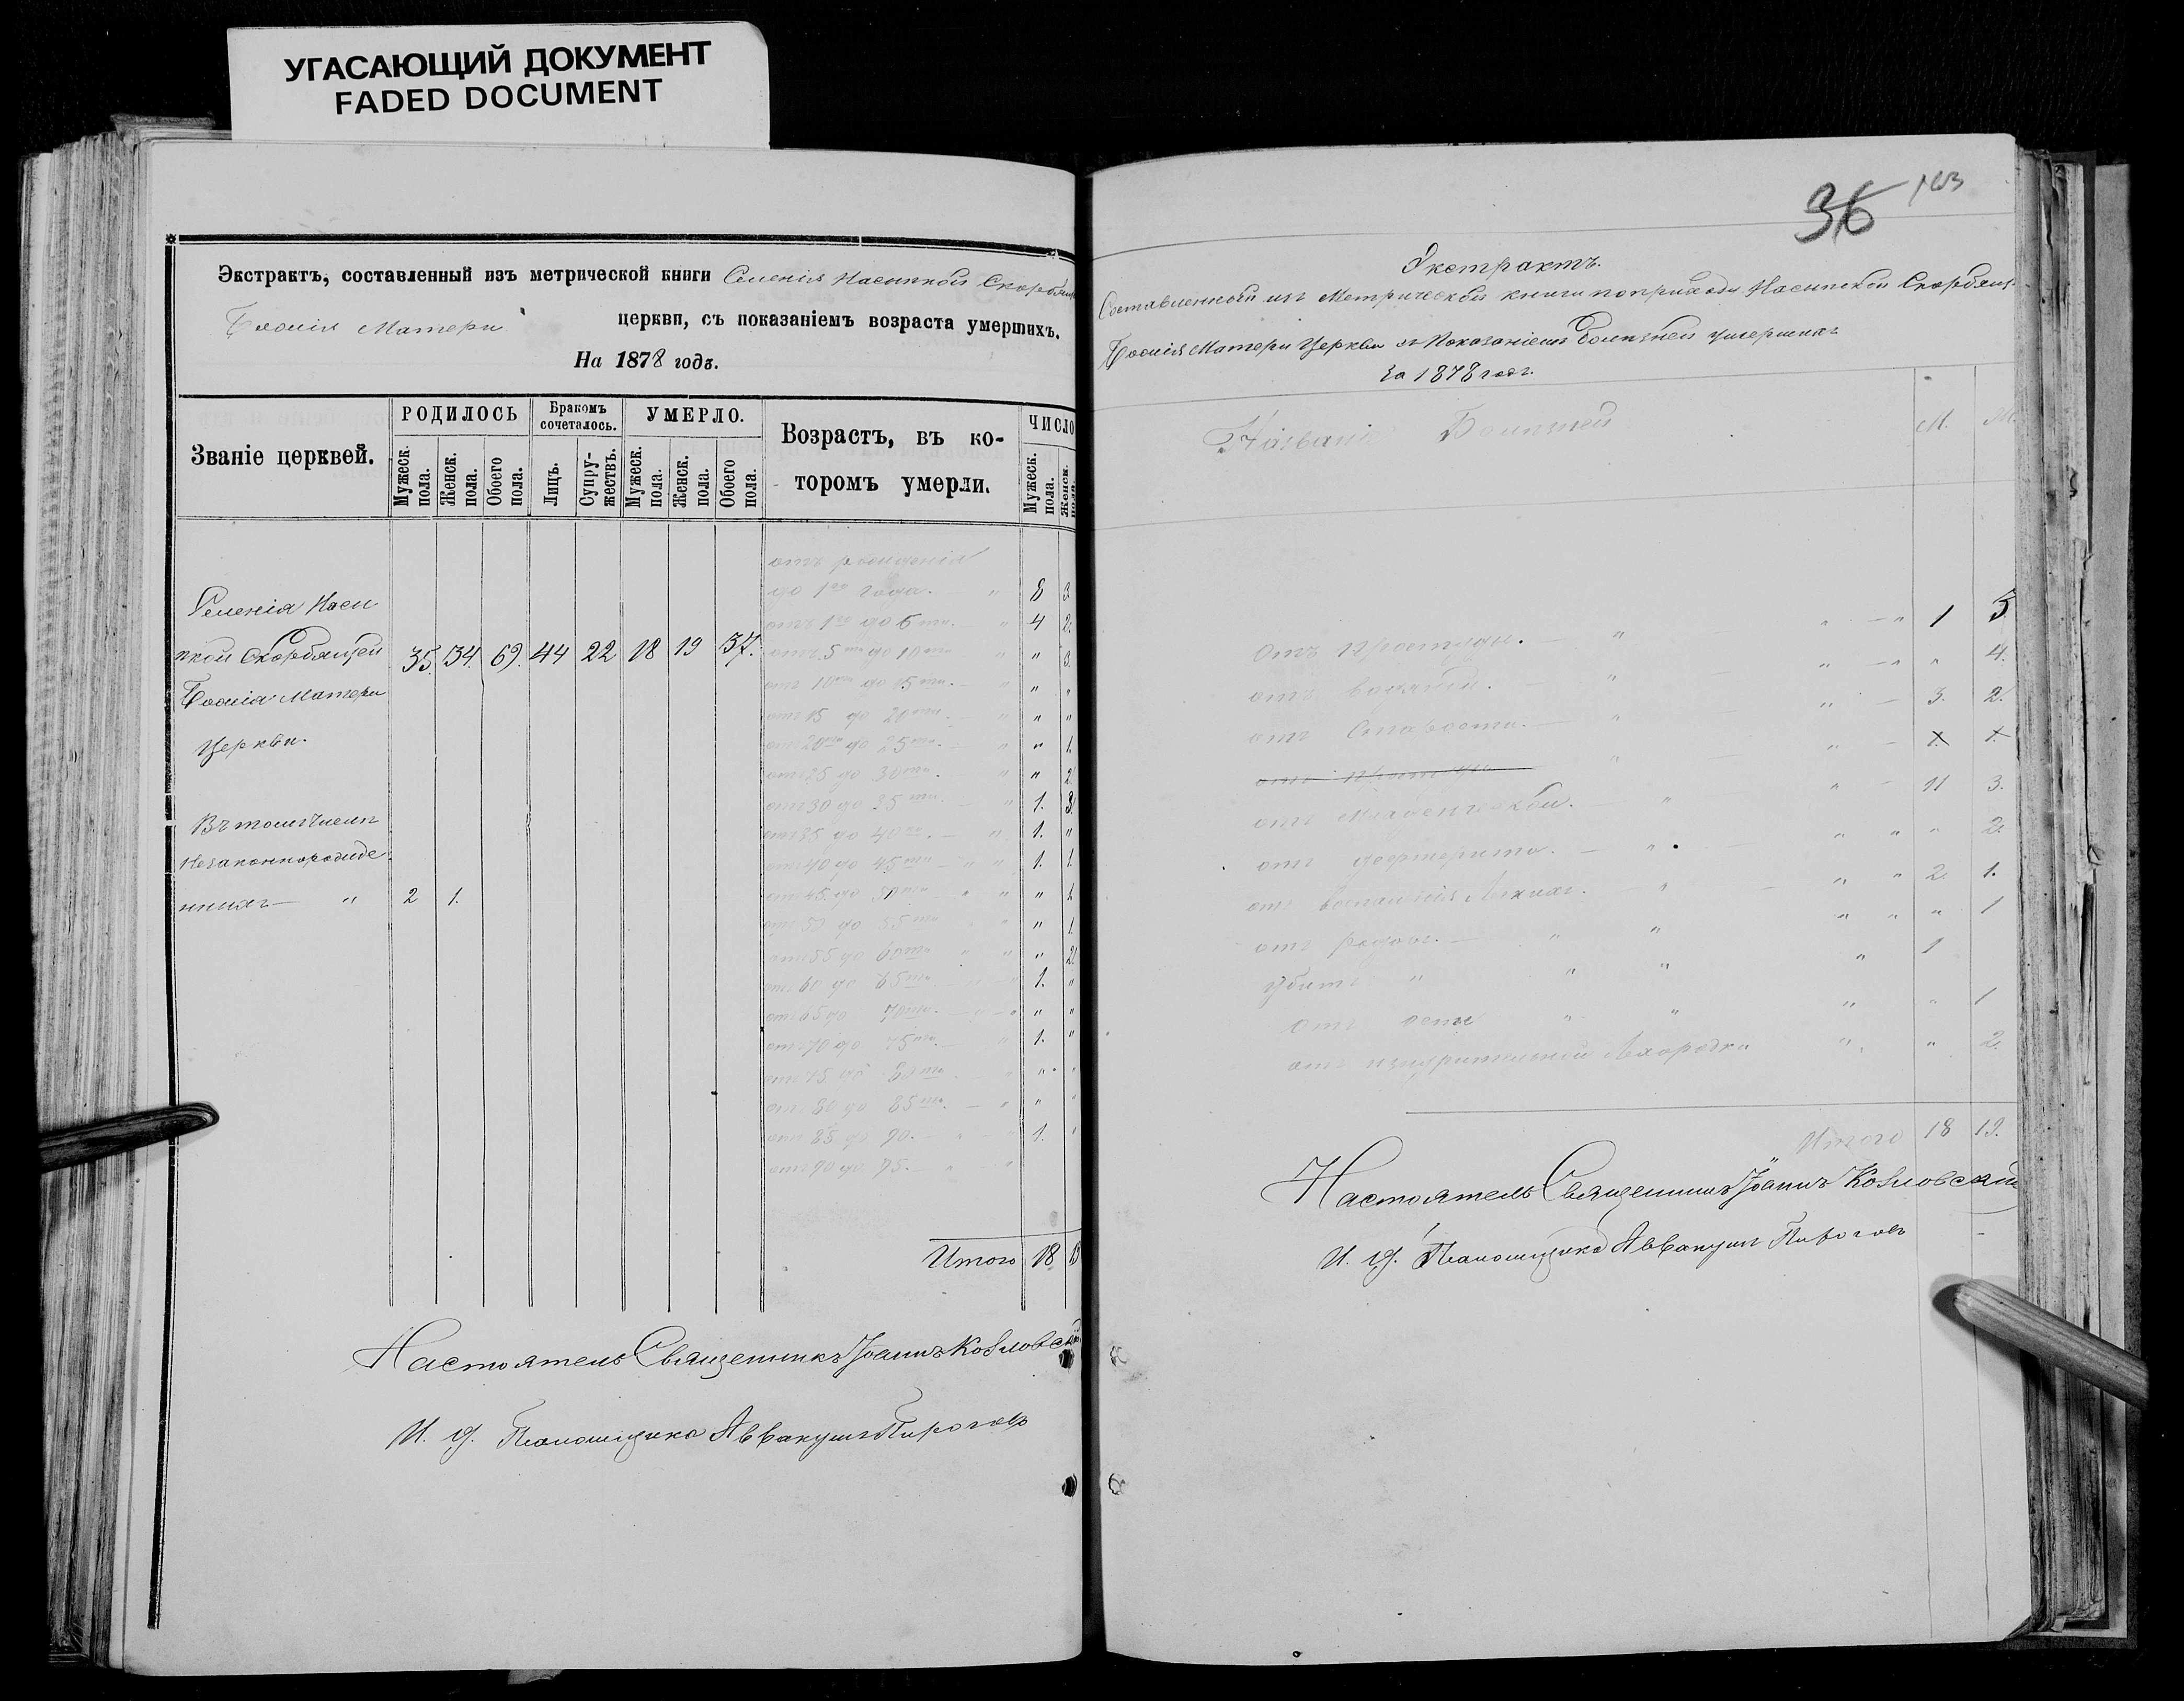 УГАСАЮЩИЙ ДОКУМЕНТ
FADED DOCUMENT
Экстрактъ, составленный изъ метрической книги Селенія Насыпкой Скорбящ
Божія Матери церкви, съ показаніемъ возраста умершихъ.
На 1878 годъ.
Званіе церквей.
РОДИЛОСЬ
Бракомъ сочеталось.
УМЕРЛО.
Возрастъ, въ ко-
торомъ умерли.
ЧИСЛО
Мужеск. пола.
Женск. пола.
Обоего пола.
Лицъ.
Супру-жествъ.
Мужеск. пола.
Женск. пола.
Обоего пола.
Мужеск. пола.
Женск. пола.
Селенія Насы
пкой Скорбящей 35. 34. 69. 44 22 18 19 37.
Божія Матери
Церкви.
Въ томъ числѣ
Незаконнорожде
нныхъ — " 2 1.
отъ рожденія
до 1го года. — " 8 3.
отъ 1го до 5ти. — " 4 2.
отъ 5ти до 10ти " " 3.
отъ 10ти до 15ти. — " " "
отъ 15 до 20ти. — " " "
отъ 20ти до 25ти. — " " 1.
отъ 25 до 30ти. " " 2.
отъ 30 до 35ти. — " 1. 3.
отъ 35 до 40. — " 1. "
отъ 40 до 45ти — " " 1. 1.
отъ 45. до 50ти " " " 1.
отъ 50 до 55ти " " " 1.
отъ 55 до 60ти " " " 2.
отъ 60 до 65ти. — " 1. "
отъ 65 до 70ти. — " — " " "
отъ 70 до 75ти. — " 1. "
отъ 75. до 80ти. — " " "
отъ 80 до 85ти. — " " "
отъ 85 до 90. — " — 1. "
отъ 90 до 95. — " — "
Итого 18
Настоятель Священникъ Іоаннъ Козловск
И. д. Псаломщика Аввакумъ Пироговъ
36 103
Экстрактъ.
Составленный изъ Метрической книги по приходу Насыпской Скорбящ.
Божія Матери Церкви съ Показаніемъ болѣзней умершихъ
За 1878 годъ.
Названіе Болѣзней М. М.
Отъ простуды. — " " — " 1 5
отъ водяной. — " " — " " 4.
отъ Слабости. — " " — 3. 2.
отъ простуды " " — 1. 1.
отъ Младенческой. — " " — 11 3.
отъ дифтерита. — " " " " 2.
отъ воспаленія Легкихъ. — " " " 2. 1.
отъ родовъ. — " " " " " 1
Убитъ " " " " 1
отъ оспы " " " " 1
отъ изнурительной Лихорадки " " 2.
Итого 18 19.
Настоятель Священникъ Іоаннъ Козловскій
И. д. Псаломщика Аввакумъ Пироговъ